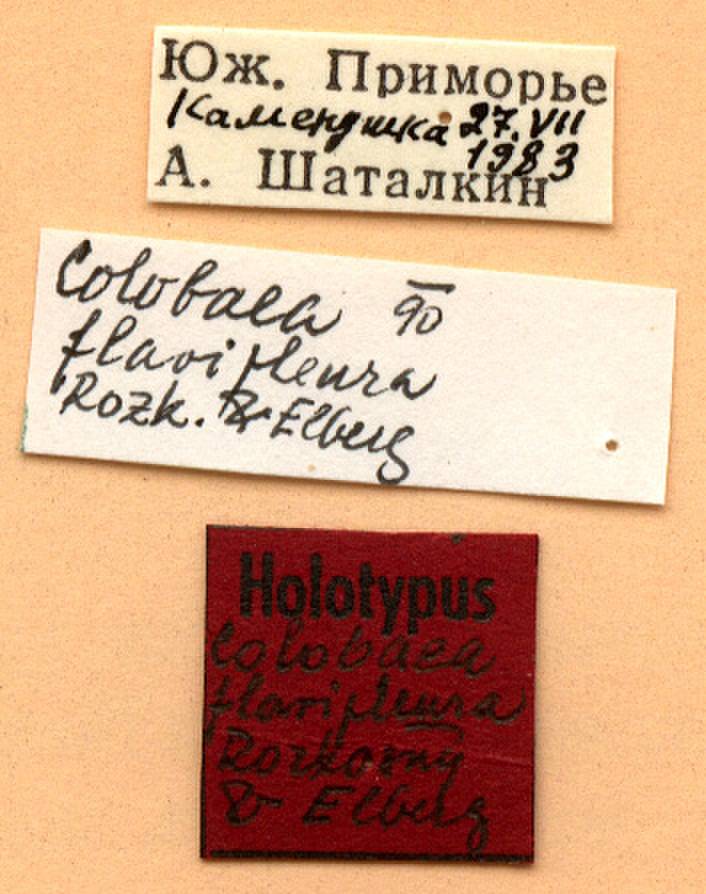 Юж. Приморье
Каменушка 27.VII
1983
А. Шаталкин
Colobaea 90
flavipleura
Rozk. & Elberg
Holotypus
Colobaea
flavipleura
Rozkosny
& Elberg